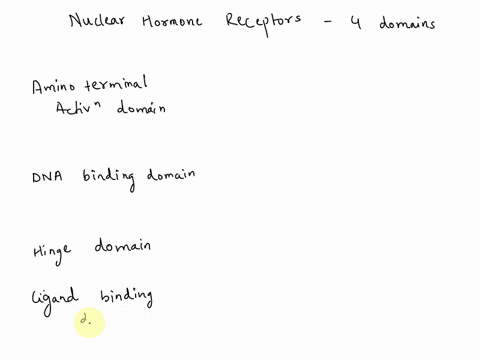 Nuclear Hormone Receptors - 4 domains
Amino terminal
Activⁿ domain
DNA binding domain
Hinge domain
Ligand binding
d.